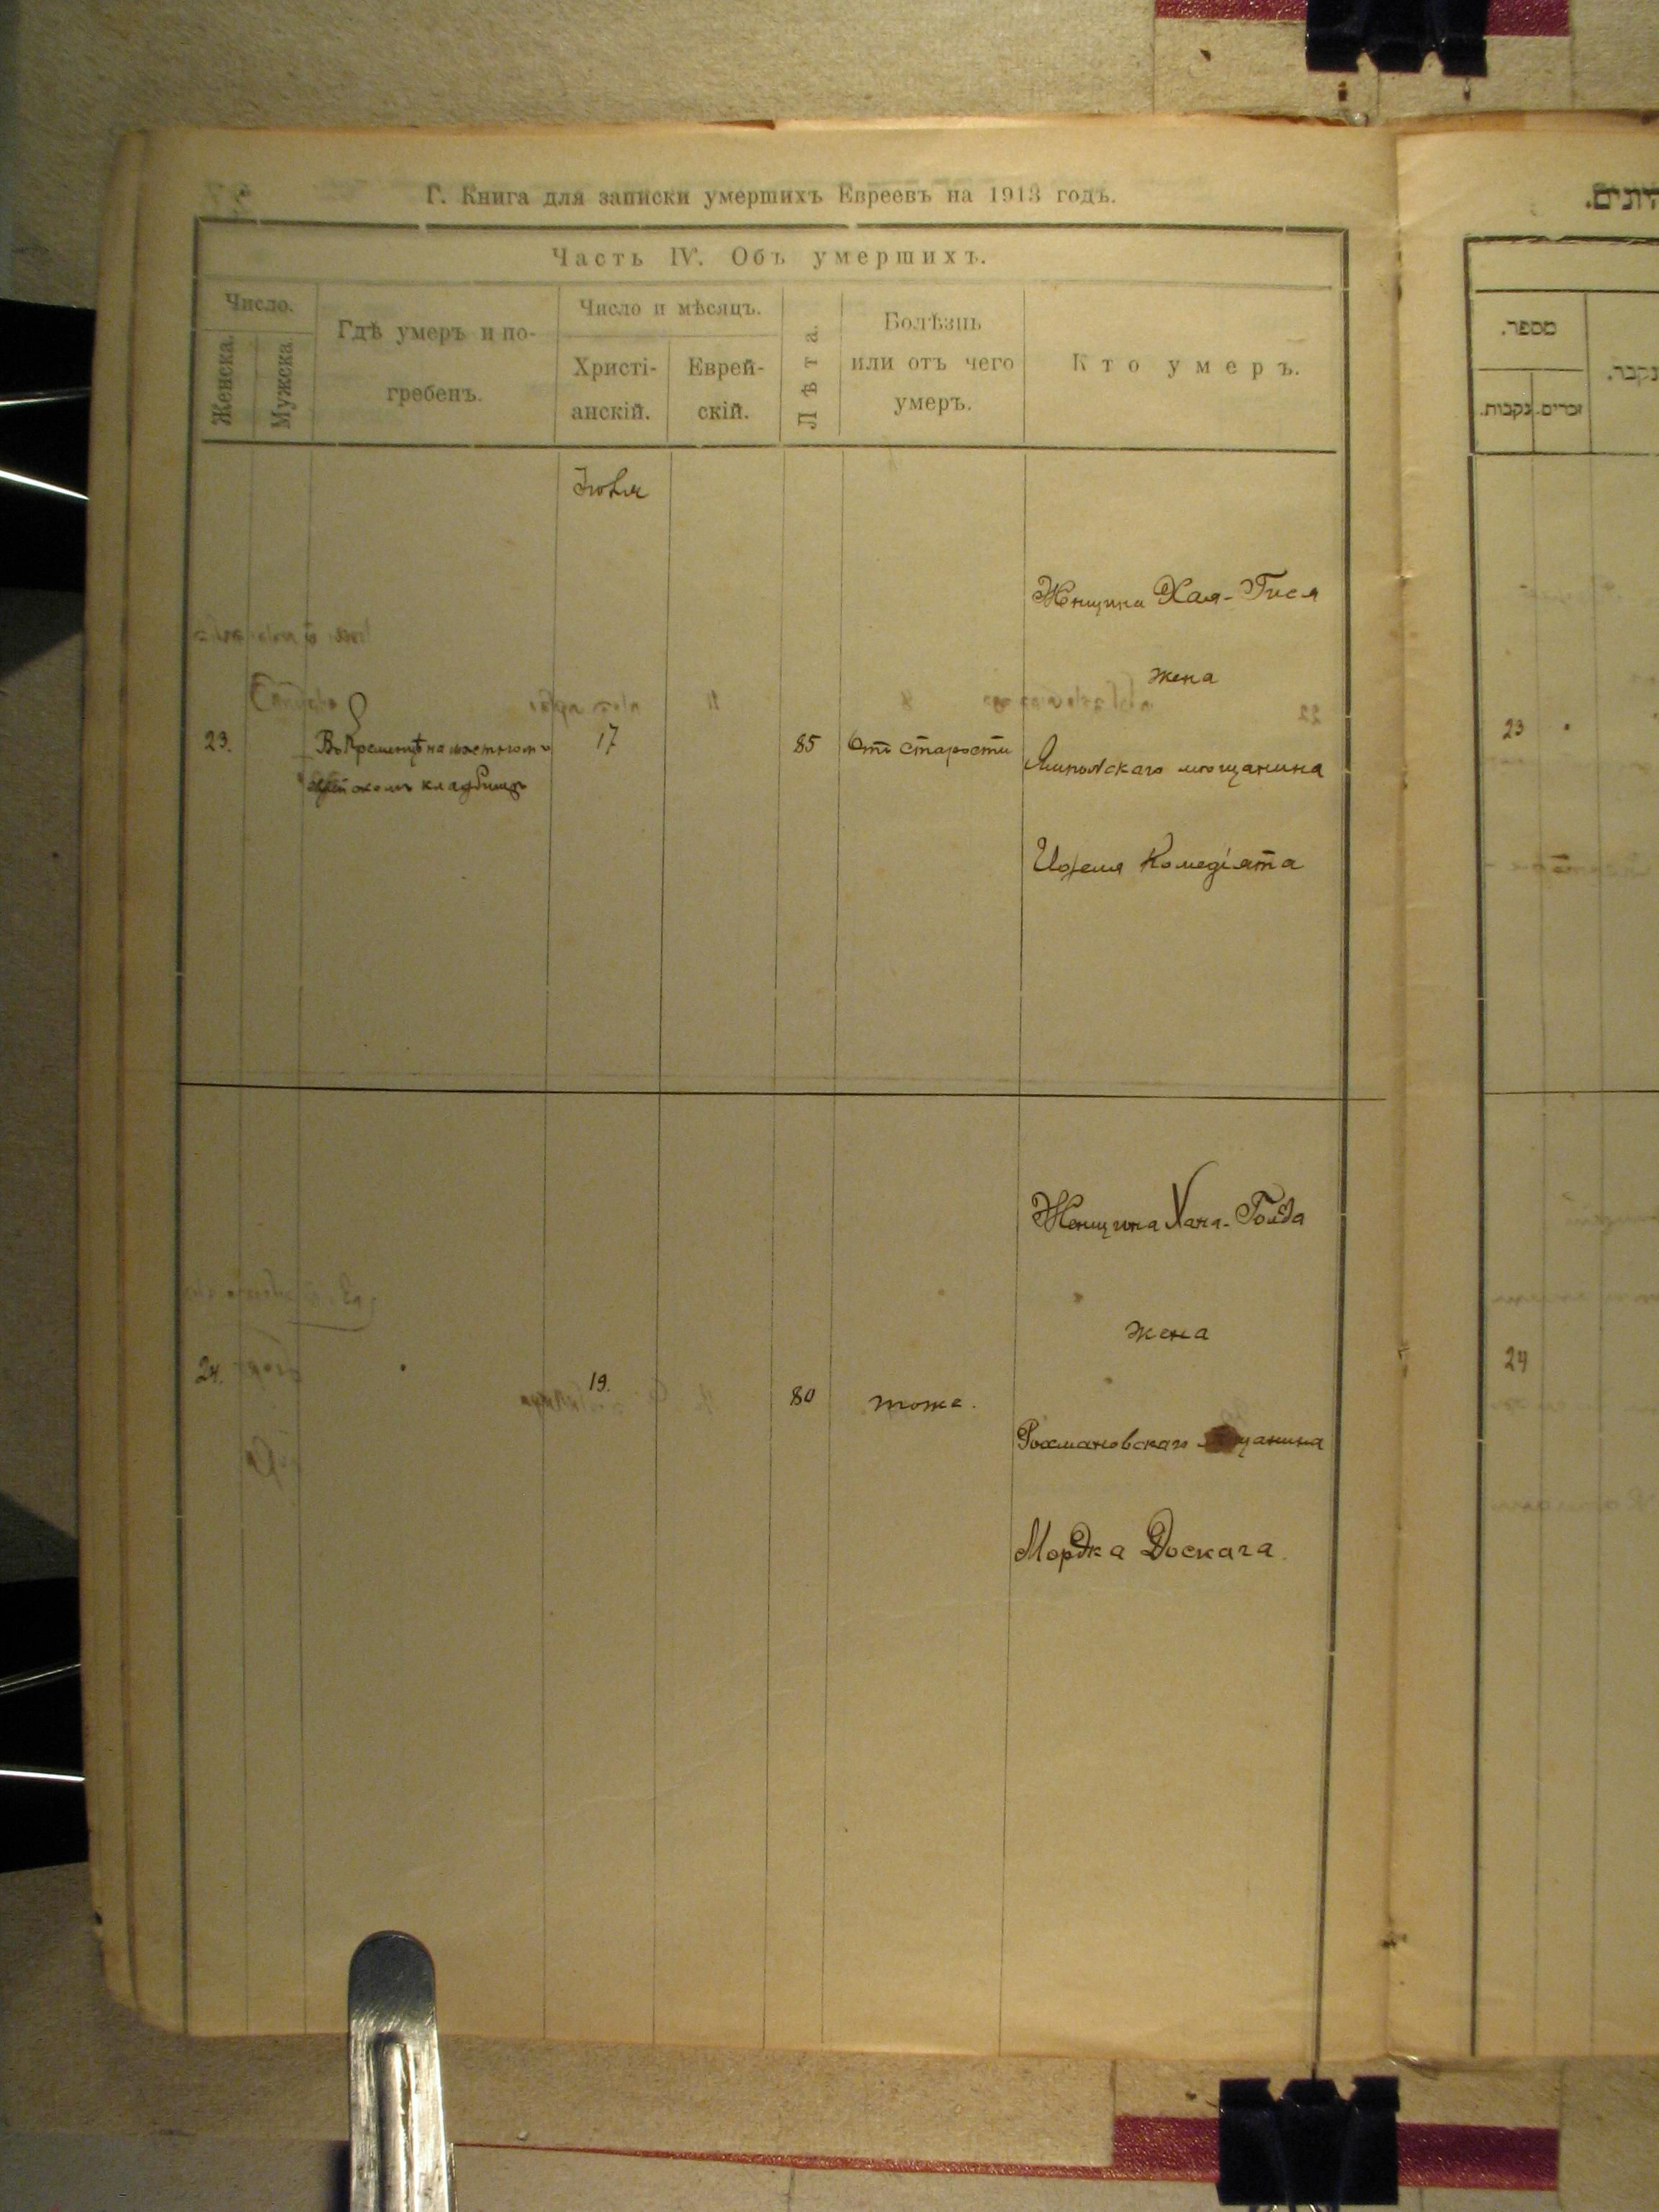 Г. Книга для записки умершихъ Евреевъ на 1913 годъ.
Часть IV. Объ умершихъ.
Число.
Женска.
Мужска
Гдѣ умеръ и по-
гребенъ.
Число и мѣсяцъ.
Христі-
анскій.
Еврей-
скій.
Лѣта.
Болѣзнь
или отъ чего
умеръ.
Кто умеръ.
Іюля
23.
Въ Кременцѣ на мѣстномъ
кладбищѣ
17
85
Отъ старости
Хая-Гися
жена
мѣщанина
Комедіята
24.
19.
80
тоже.
Женщина Хана-Голда
жена
Рохмановскаго
Мордка Доскача
מספר.
נקבות.
זכרים.
נקבר.
23
24